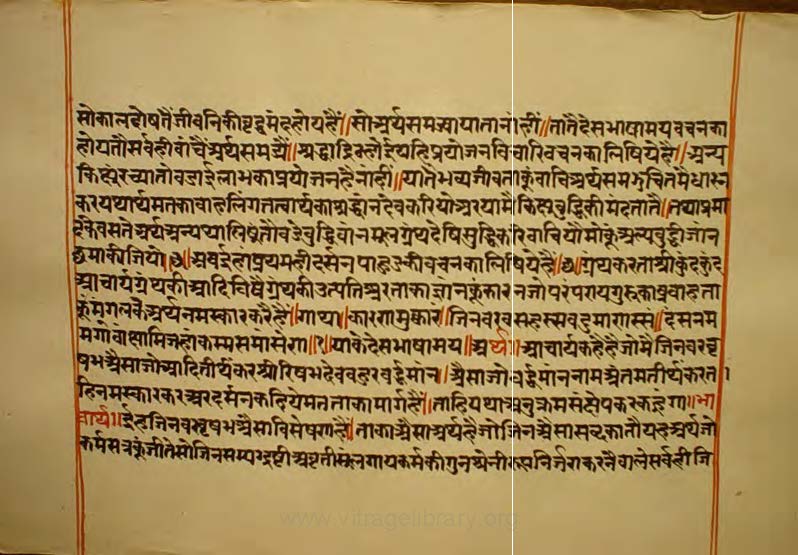 सोकालदोषतैंजीवनिकीबुद्धमंदहोयहैं॥सोअर्थसमझ्याजातानांहीं॥तातैदेसभाषामयवचनका
होयतौसर्वहीवांचैंअर्थसमझैं॥श्रद्धादिभीहोईयहिप्रयोजनविचारिवचनकालिषियेहै॥अन्य
किछूंरच्यातौवडाईलाभकाप्रयोजनहैनांही॥यातैंभव्यजीवताकूंवाचिअर्थसमझचितमैंधारन
करयथार्थमतकावाह्यलिंगतत्वार्थकाश्रद्धांनदेवकरियोअरयामैकिछूबुद्धिकीमंदतातै॥तथाप्रमा
दकेवसतेअर्थअन्यथालिषूंतौवडेबुद्धिवांनमूलग्रंथदेषिसुद्धिकरिवाचियोमोकूंअल्पबुद्धीजांन
छमाकीजियो॥छ॥अबईहाप्रथमहीदर्सनपाहुडकीवचनकालिषियेहै॥छ॥ग्रंथकरताश्रीकुंदकुंद
आचार्यग्रंथकीआदिविषैग्रंथकीउत्पतिअरताकाज्ञानकूंकारनजोपरंपरायगुरुकाप्रवाहता
कूंमंगलकैअर्थनमस्कारकरैहैं॥गाथा॥काऊणमुक्कारं॥जिनवरवसहस्सवड्ढमाणस्स॥दंसनम
मग्गंवोक्षामिजहांकम्मसमासेण॥१॥याकेदेसभाषामय॥अर्थ॥आचार्यकहैहैजोमैंजिनवरवृ
षभऐसाजोआदितीर्थकरश्रीरिषभदेववहुरवर्द्धमांन॥ऐसाजोवर्द्धमांननामअंतमतीर्थकरत
हिनमस्कारकरअरदर्सनकहियेमतताकामार्गहै॥ताहियथाअनुक्रमसंक्षेपकरकहूंगा॥भा
वार्थ॥ईहांजिनवरवृषभऐसाविसेषणहैं॥ताकाऐसाअर्थहैजोजिनऐसासब्दकातौयहअर्थजो
कर्मसत्रूकूंजीतैसोजिनसम्यग्दृष्टीअवृतीसूंलगायकर्मकीगुनश्रेनीरूपनिर्जराकरनेवालेसर्वहीजि
www.vitragelibrary.org